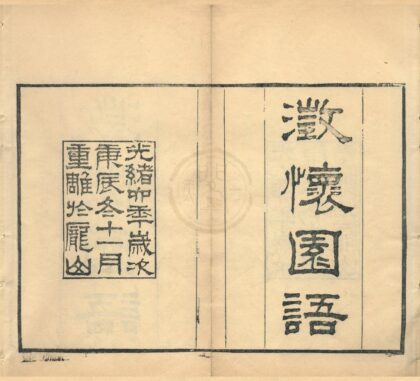 澂懷園語
光緒六年歲次
庚辰冬十一月
重雕於龐山